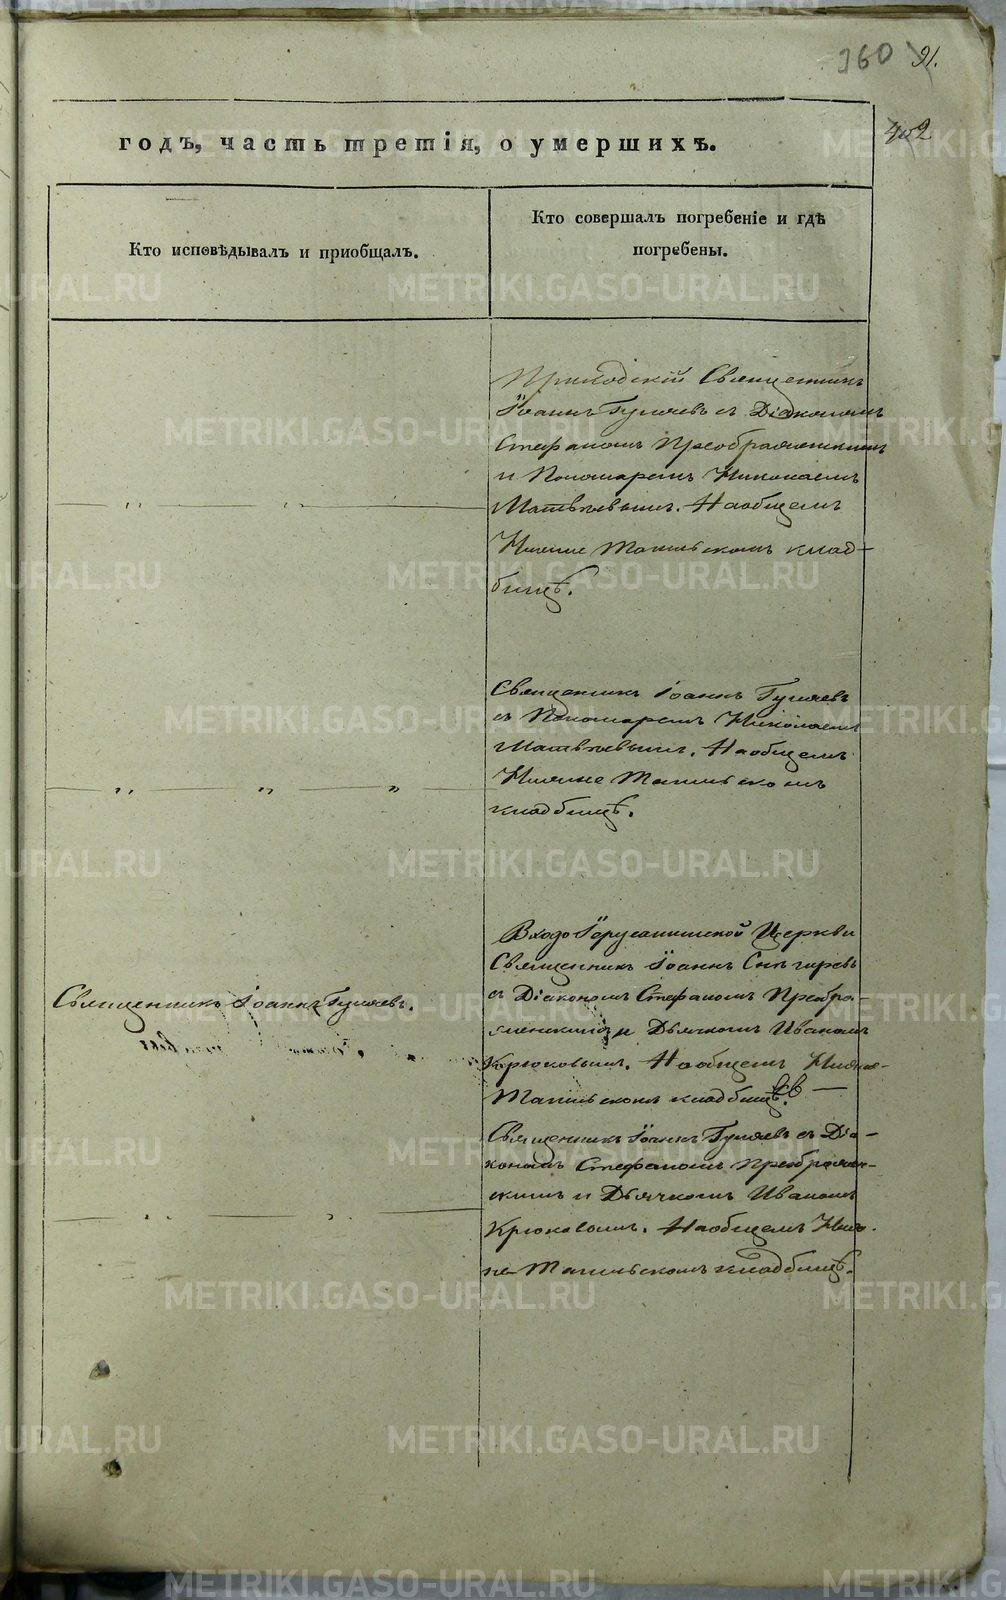 360 91.
402
годъ, часть третія, о умершихъ.
Кто исповѣдывалъ и приобщалъ.
Кто совершалъ погребеніе и гдѣ
погребены.
Приходскій Священникъ
Іоаннъ Гуляевъ съ Діакономъ
Стефаномъ Преображенскимъ
и Пономаремъ Николаемъ
Матвѣевымъ. На общемъ
Нижне Тагильскомъ клад-
бищѣ.
Священникъ Іоаннъ Гуляевъ
съ Пономаремъ Николаемъ
Матвѣевымъ. На общемъ
Нижне Тагильскомъ
кладбищѣ.
Священникъ Іоаннъ Гуляевъ.
Входо Іерусалимской Церкви
Священникъ Іоаннъ Снѣгиревъ
съ Діакономъ Стефаномъ Преобра-
женскимъ и Дьячкомъ Иваномъ
Крюковымъ. На общемъ Нижне-
Тагильскомъ кладбищѣ.
Священникъ Іоаннъ Гуляевъ съ Діа-
кономъ Стефаномъ Преображен-
скимъ и Дьячкомъ Иваномъ
Крюковымъ. На общемъ Ниж-
не Тагильскомъ кладбищѣ.
METRIKI.GASO-URAL.RU